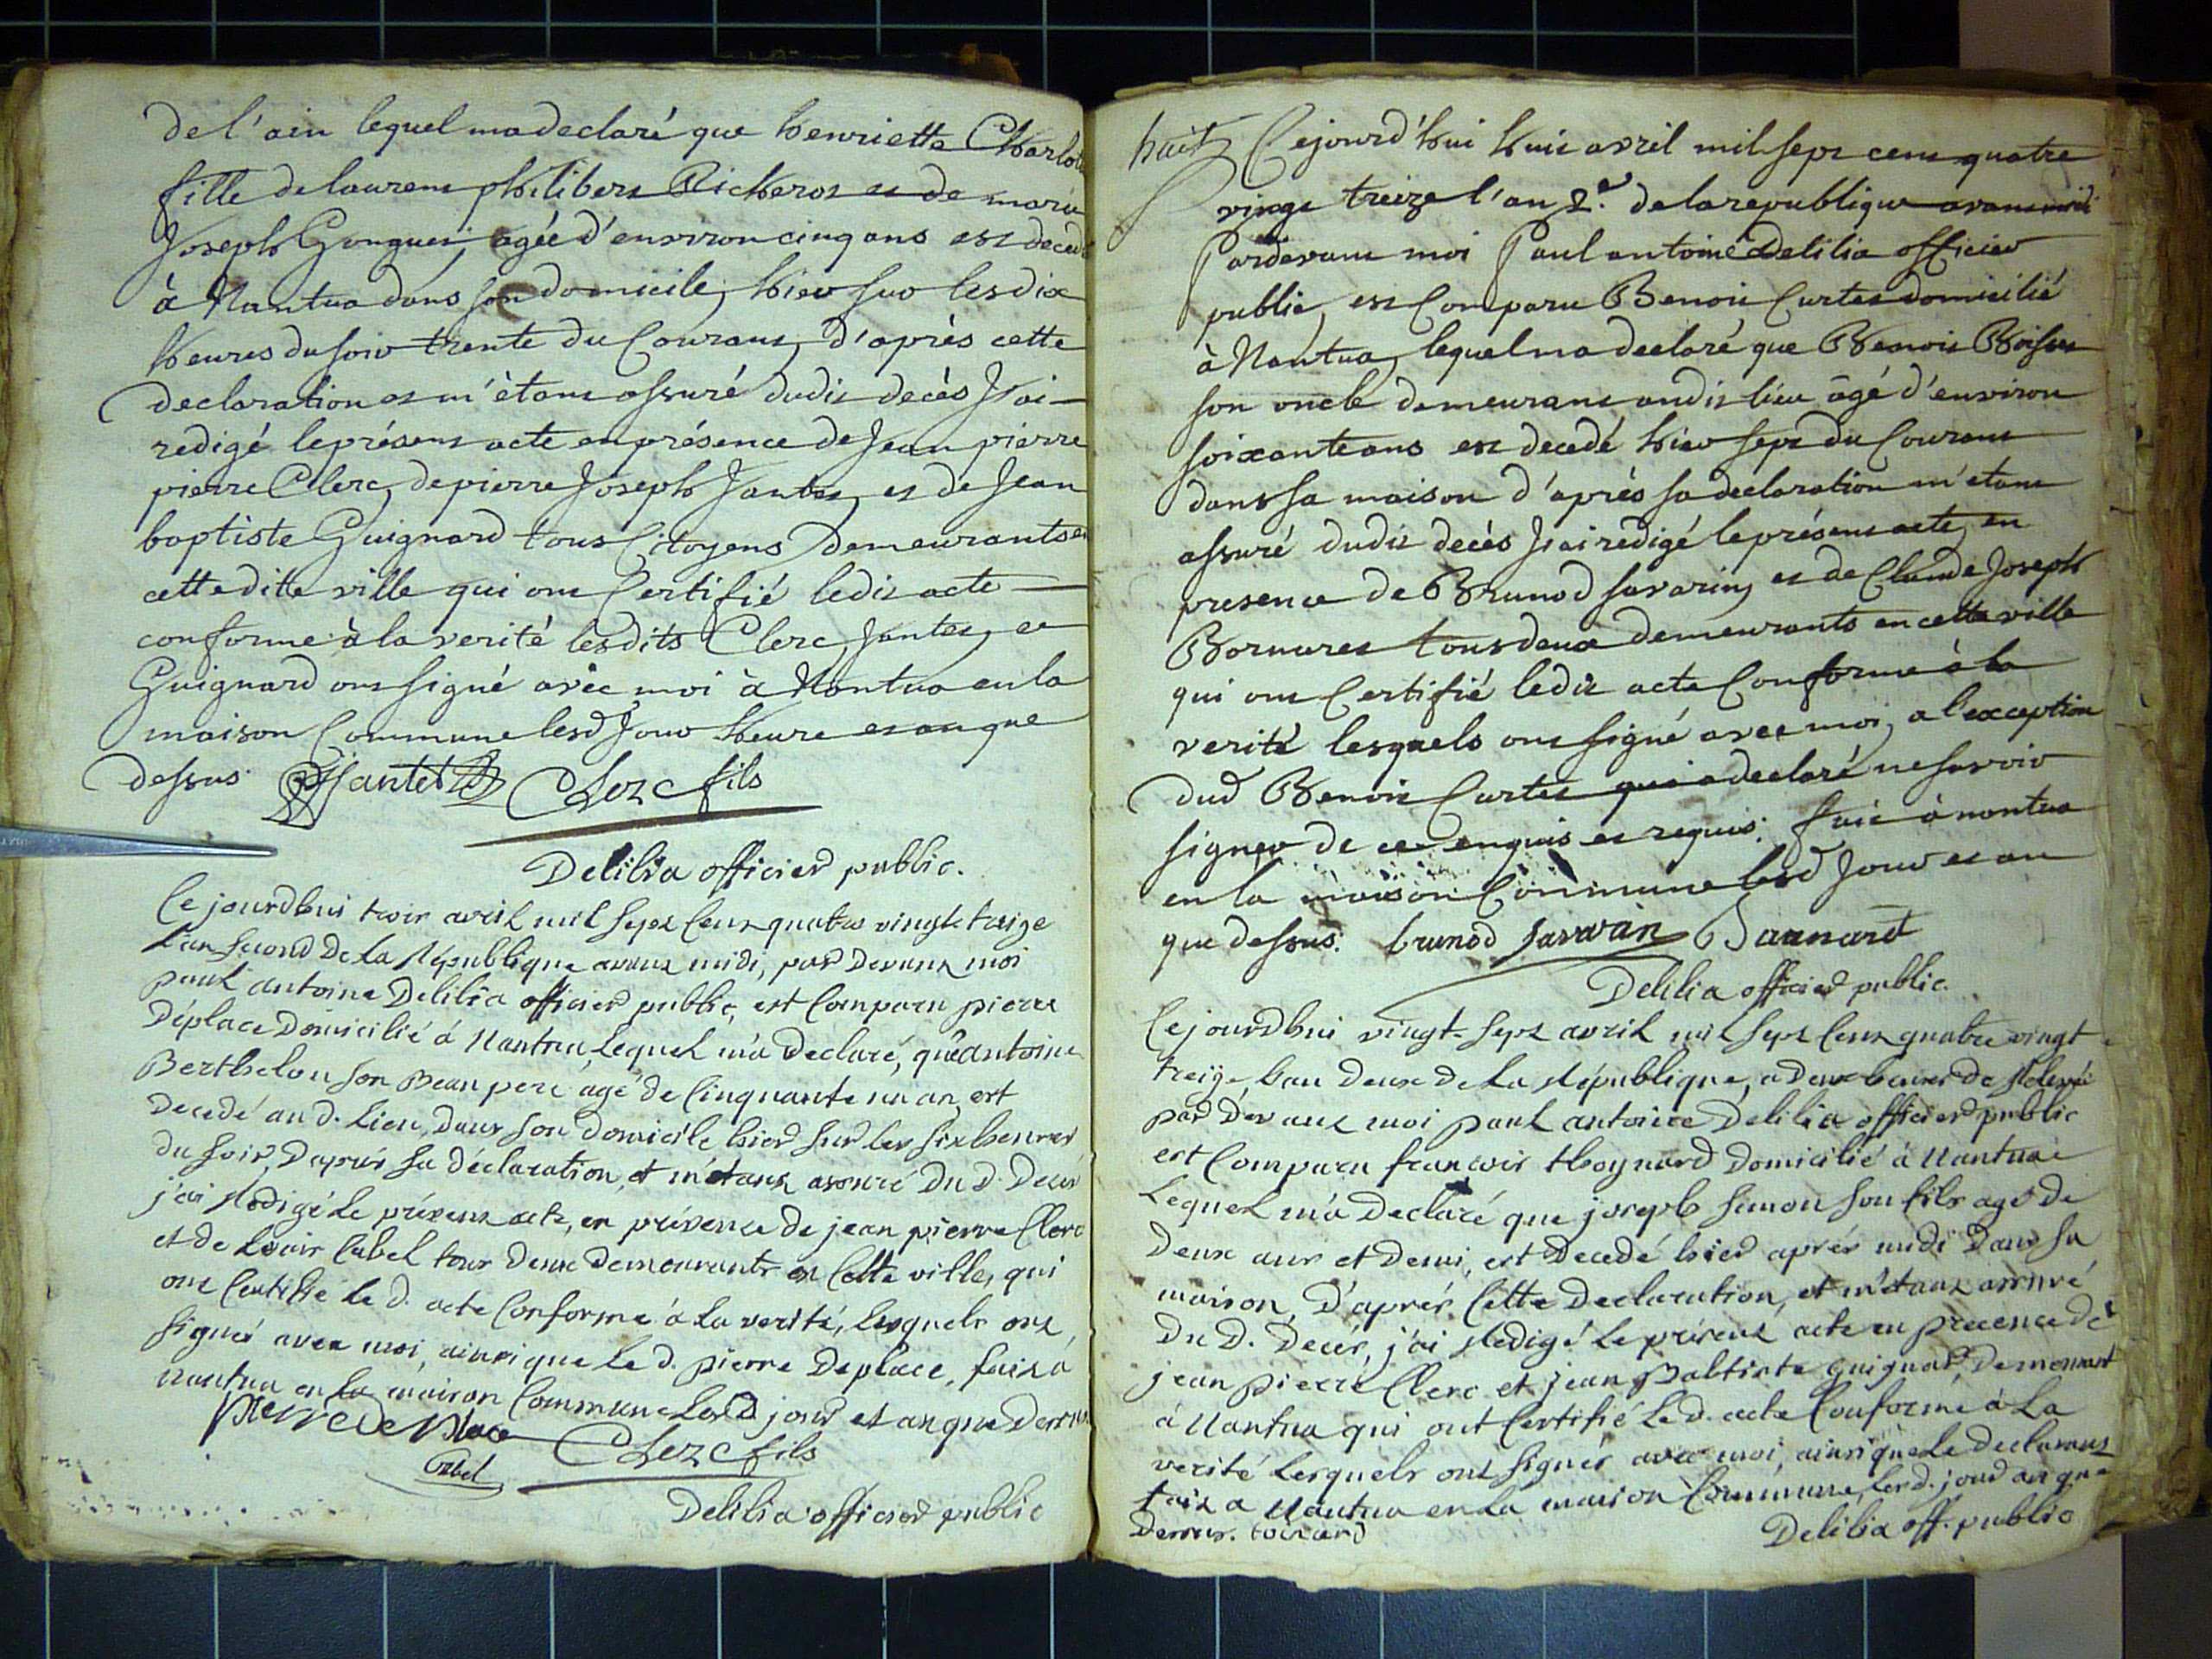 de l'ain lequel ma declaré que henriette Charlote
fille de laurent philibert Richerot et de marie
Joseph agée d'environ cinq ans est decedé
à Nantua dans son domicile, hier sur les dix
heures du soir trente du Courant, d'après cette
declaration et m'ètant assuré dudit decès J'ai
redigé le présent acte en présence de Jean pierre
pierre Clerc, de pierre Joseph Jantet, et de Jean
baptiste Guignard tous Citoyens Demeurants en
cette ditte ville qui ont Certifié ledit acte
conforme à la verité lesdits Clerc, Jantet, et
Guignard ont signé avèc moi à Nantua en la
maison Commune lesd Jour heure et an que
dessus. Jantet Clerc fils
Delilia officier public.
Ce jourdhui trois avril mil sept Cent quatre vingt treize
L'an second De La République avant midi, par Devant moi
paul antoine Delilia officier public, est Comparu pierre
Déplace Domicilié à Nantua, Lequel m'a Declaré, qu'antoine
Berthelon son Beau pere agé de Cinquante un an, est
Decedé au d. Lieu, Dans son Domicile hier sur les six heures
du soir, D'après sa déclaration, et m'étant assuré Du D. Decès
j'ai Redigé Le présent acte, en présence de jean pierre Clerc
et de Louis Cabel tous Deux Demeurants en Cette ville, qui
ont Certifié Le d. acte Conforme à La verité, Lesquels ont
signés avec moi, ainsi que Le d. pierre Deplace, fait à
Nantua en La maison Commune Les D jour et an que Dessus
pierre de place Clerc fils
Cabel
Delilia officier public
huit Cejourd'hui huit avril mil sept cent quatre
vingt treize l'an 2.e de la republique avant midi
Pardevant moi Paul antoine Delilia officier
public, est Comparu Benoit Curtet domicilié
à Nantua, lequel ma declaré que Benoit
son oncle demeurant audit lieu âgé d'environ
soixante ans est decedé hier sept du Courant
dans sa maison d'après sa declaration m'étant
assuré dudit decès J'ai redigé le présent acte, en
presence de Brunod savarin, et de Claude Joseph
tous deux demeurants en cette ville
qui ont Certifié ledit acte Conforme à la
verité lesquels ont signé avec moi, a l'exception
dud Benoit Curtet qui a declaré ne savoir
signer de ce enquis et requis. fait à nantua
en la maison Commune lesd Jour et an
que dessus. brunod savarin
Delilia officier public.
Ce jourdhui vingt-sept avril mil sept Cent quatre vingt
treize, L'an Deux De La République, a deux heures de Relevé
par Devant moi paul antoine Delilia officier public
est Comparu françois thoynard Domicilié à Nantua
Lequel m'a Declaré que joseph simon son fils agé de
Deux ans et Demi, est Decedé hier après midi Dans sa
maison, D'après Cette Declaration, et m'étant assuré
Du D. Decès, j'ai Redigé Le présent acte en presence de
jean pierre Clerc et jean Baptiste guignard, Demeurant
à Nantua qui ont Certifié Le d. acte Conforme à La
verité Lesquels ont signés avec moi, ainsi que Le Declarant
fait a Nantua en La maison Commune, Les d. jour an que
Dessus. toinard
Delilia off. public